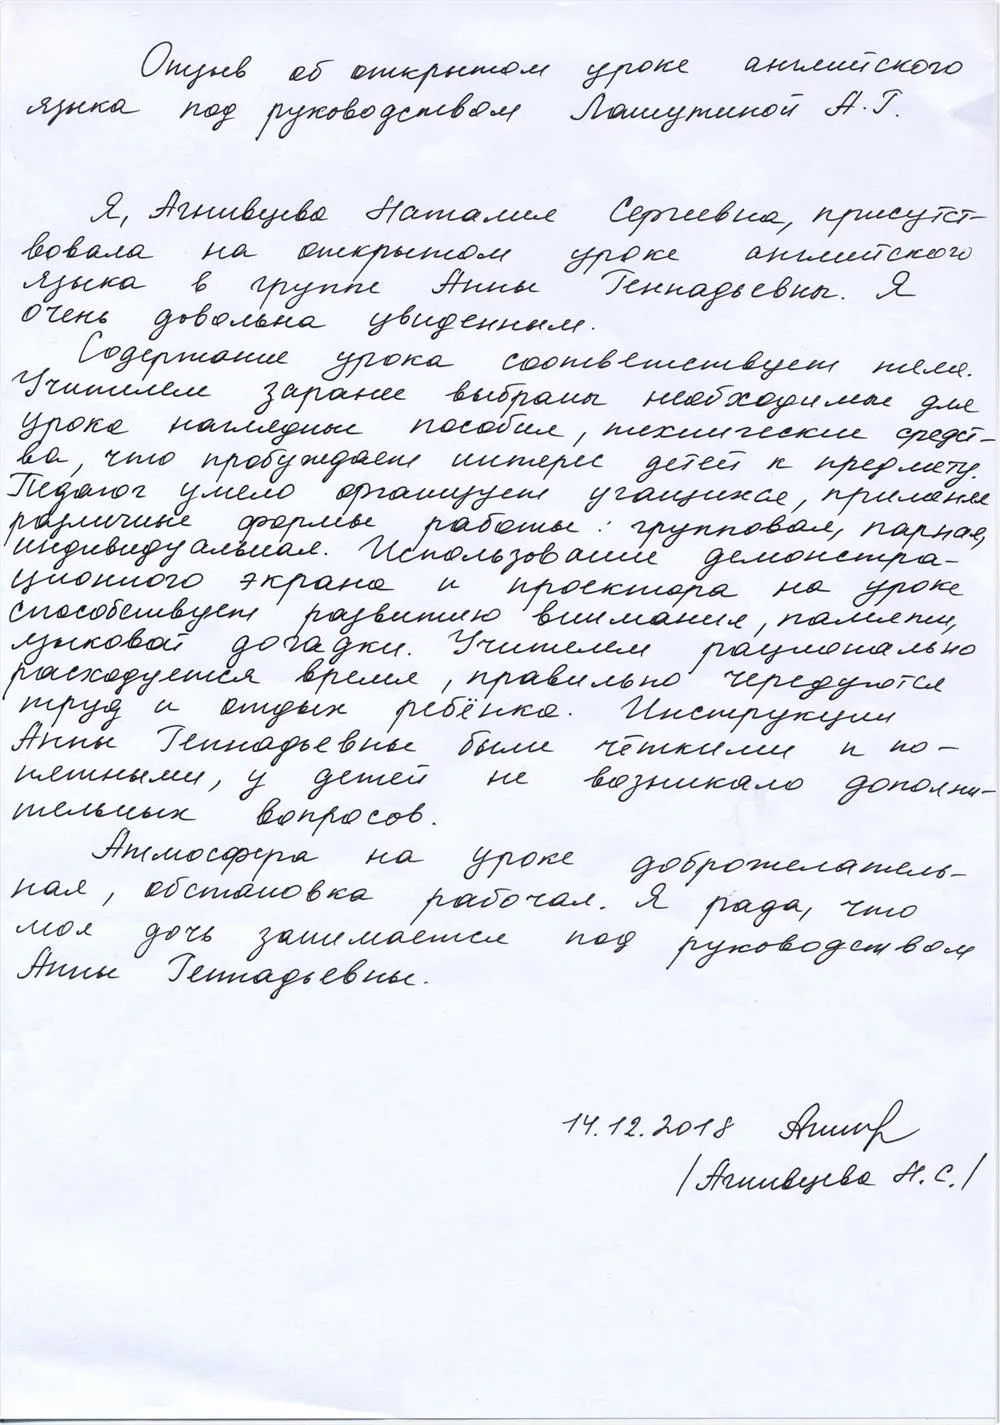 Отзыв об открытом уроке английского
языка под руководством Лашутиной А.Г.
Я, Агнивцева Наталия Сергеевна, присутст-
вовала на открытом уроке английского
языка в группе Анны Геннадьевны. Я
очень довольна увиденным.
Содержание урока соответствует теме.
Учителем заранее выбраны необходимые для
урока наглядные пособия, технические средст-
ва, что пробуждает интерес детей к предмету.
Педагог умело организует учащихся, применяя
различные формы работы: групповая, парная,
индивидуальная. Использование демонстра-
ционного экрана и проектора на уроке
способствует развитию внимания, памяти,
языковой догадки. Учителем рационально
расходуется время, правильно чередуются
труд и отдых ребёнка. Инструкции
Анны Геннадьевны были чёткими и по-
нятными, у детей не возникало дополни-
тельных вопросов.
Атмосфера на уроке доброжелатель-
ная, обстановка рабочая. Я рада, что
моя дочь занимается под руководством
Анны Геннадьевны.
14.12.2018
/Агнивцева Н.С./